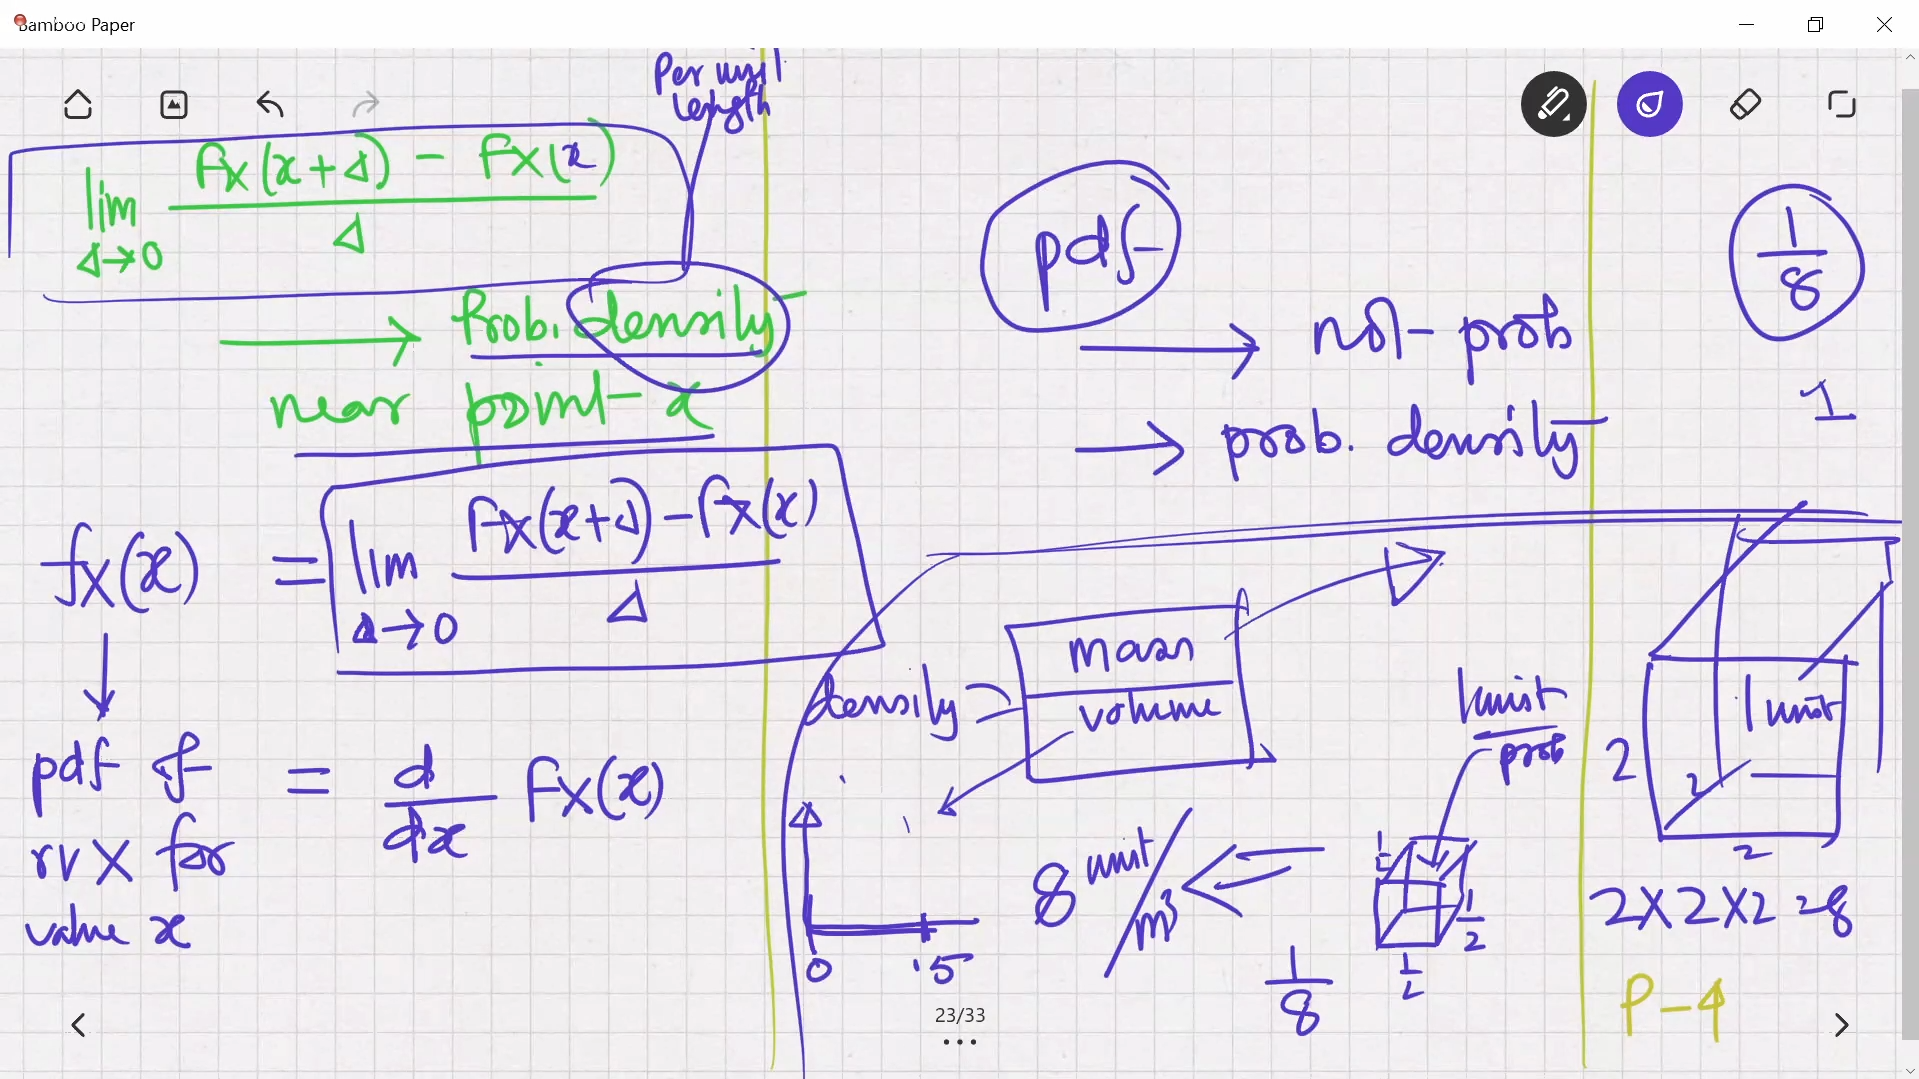 Bamboo Paper
Per unit
length
lim Δ→0 Fx(x+Δ) - Fx(x)
Δ
Prob. density
near point x
fx(x) = lim Δ→0 Fx(x+Δ) - Fx(x)
Δ
pdf of = d/dx Fx(x)
rv X for
value x
pdf
not prob
prob. density
1/8
1
density = mass
volume
0 .5
8 unit/m³
1 unit
prob
1/2
1/2
1/8
1 unit
2
2
2
2X2X2 = 8
P-4
23/33